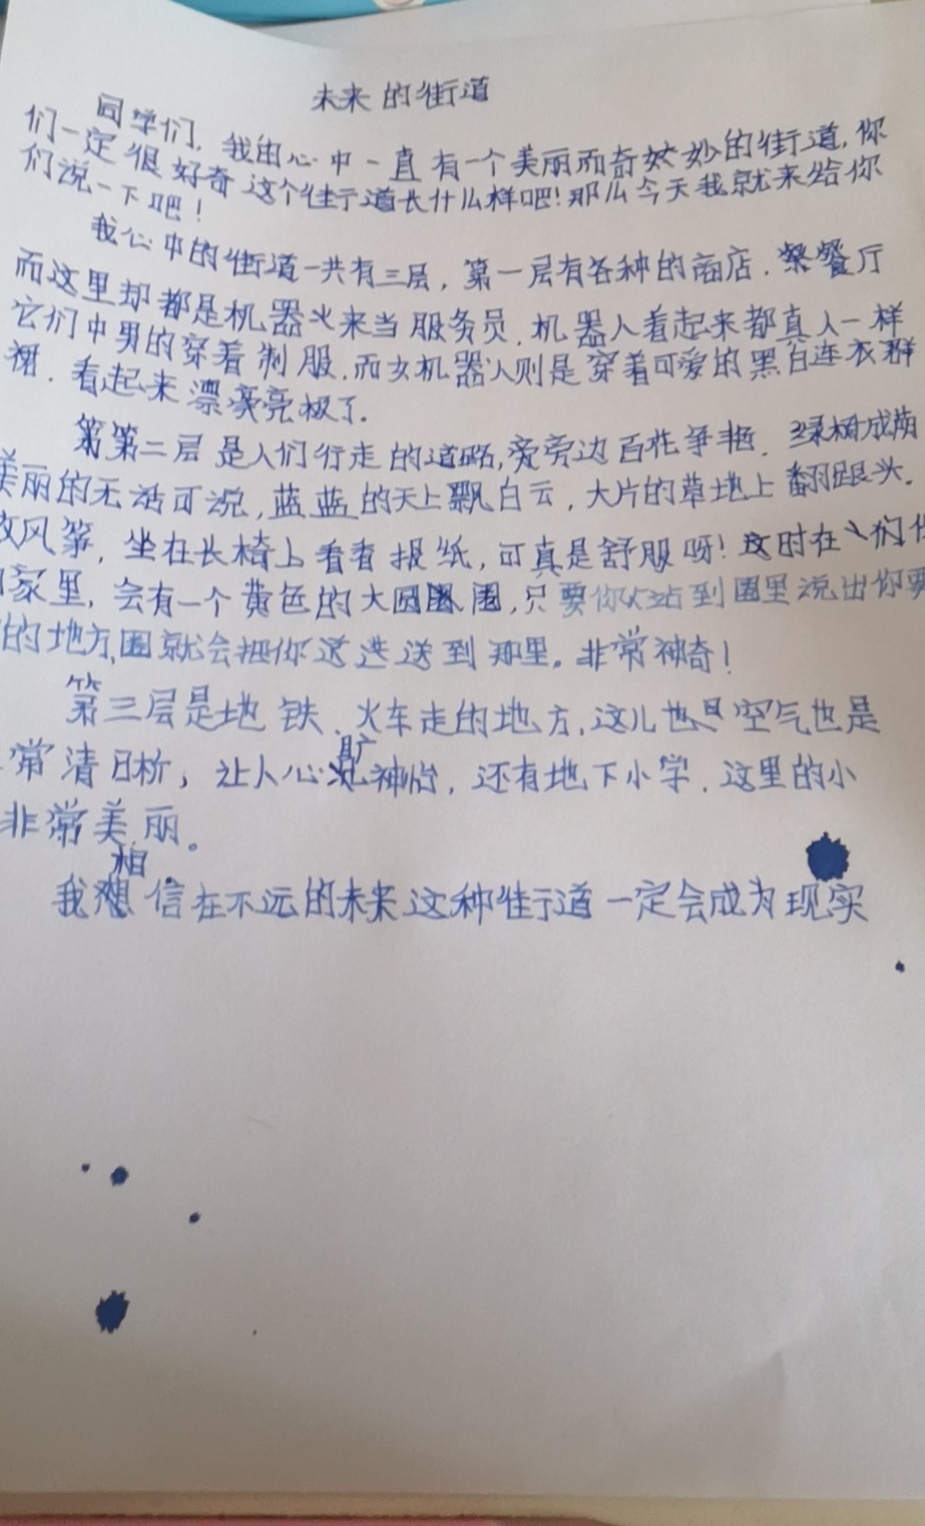 未来的街道
同学们，我的心中一直有一个美丽而奇妙的街道，你
们一定很好奇这个街道长什么样吧！那么今天我就来给你
们说一下吧！
我心中的街道一共有三层，第一层有各种的商店，餐厅
而这里却都是机器人来当服务员，机器人看起来都真人一样
它们中男的穿着制服，而女机器人则是穿着可爱的黑白连衣群
裙，看起来漂亮极了。
第二层是人们行走的道路，旁边百花争艳，绿树成荫
美丽的无话可说，蓝蓝的天上飘白云，大片的草地上翻跟头，
放风筝，坐在长椅上看看报纸，可真是舒服呀！这时在人们
家里，会有一个黄色的大圆圈，只要你站到圈里说出你要
的地方，圈就会把你送到那里。非常神奇！
第三层是地铁、火车走的地方，这儿也是空气也是
常清晰，让人心旷神怡，还有地下小学，这里的小
非常美丽。
我相信在不远的未来这种街道一定会成为现实